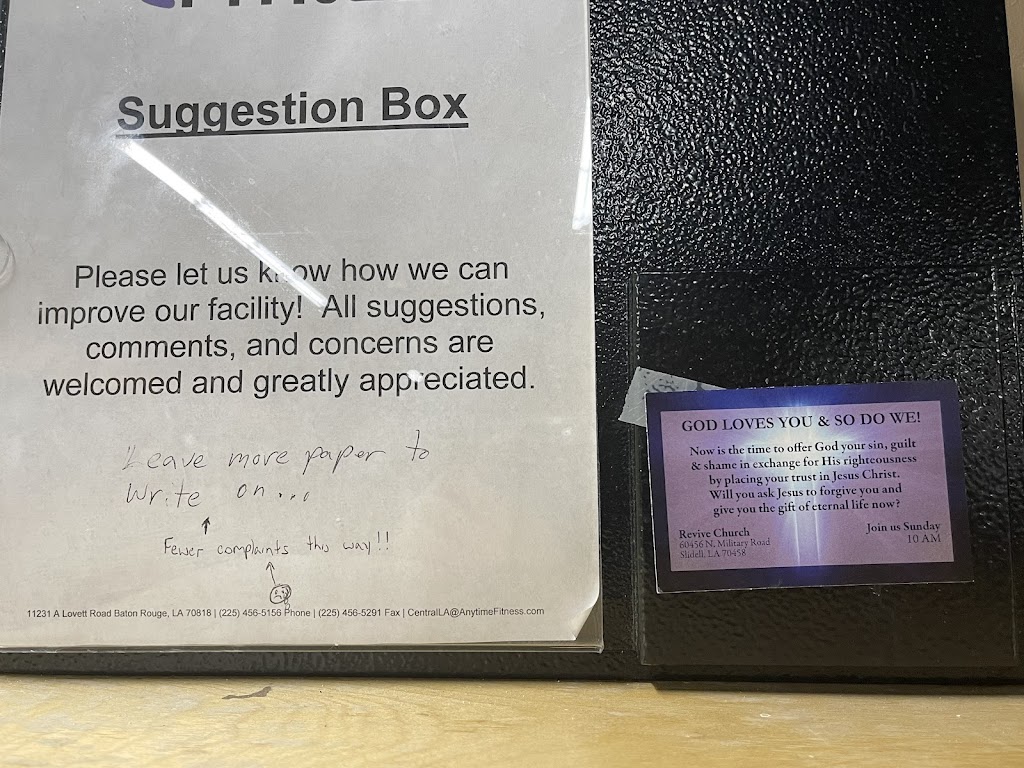 Suggestion Box
Please let us know how we can
improve our facility! All suggestions,
comments, and concerns are
welcomed and greatly appreciated.
Leave more paper to
Write on...
Fewer complaints this way!!
11231 A Lovett Road Baton Rouge, LA 70818 | (225) 456-5156 Phone | (225) 456-5291 Fax | CentralLA@AnytimeFitness.com
GOD LOVES YOU & SO DO WE!
Now is the time to offer God your sin, guilt
& shame in exchange for His righteousness
by placing your trust in Jesus Christ.
Will you ask Jesus to forgive you and
give you the gift of eternal life now?
Revive Church
60456 N. Military Road
Slidell, LA 70458
Join us Sunday
10 AM